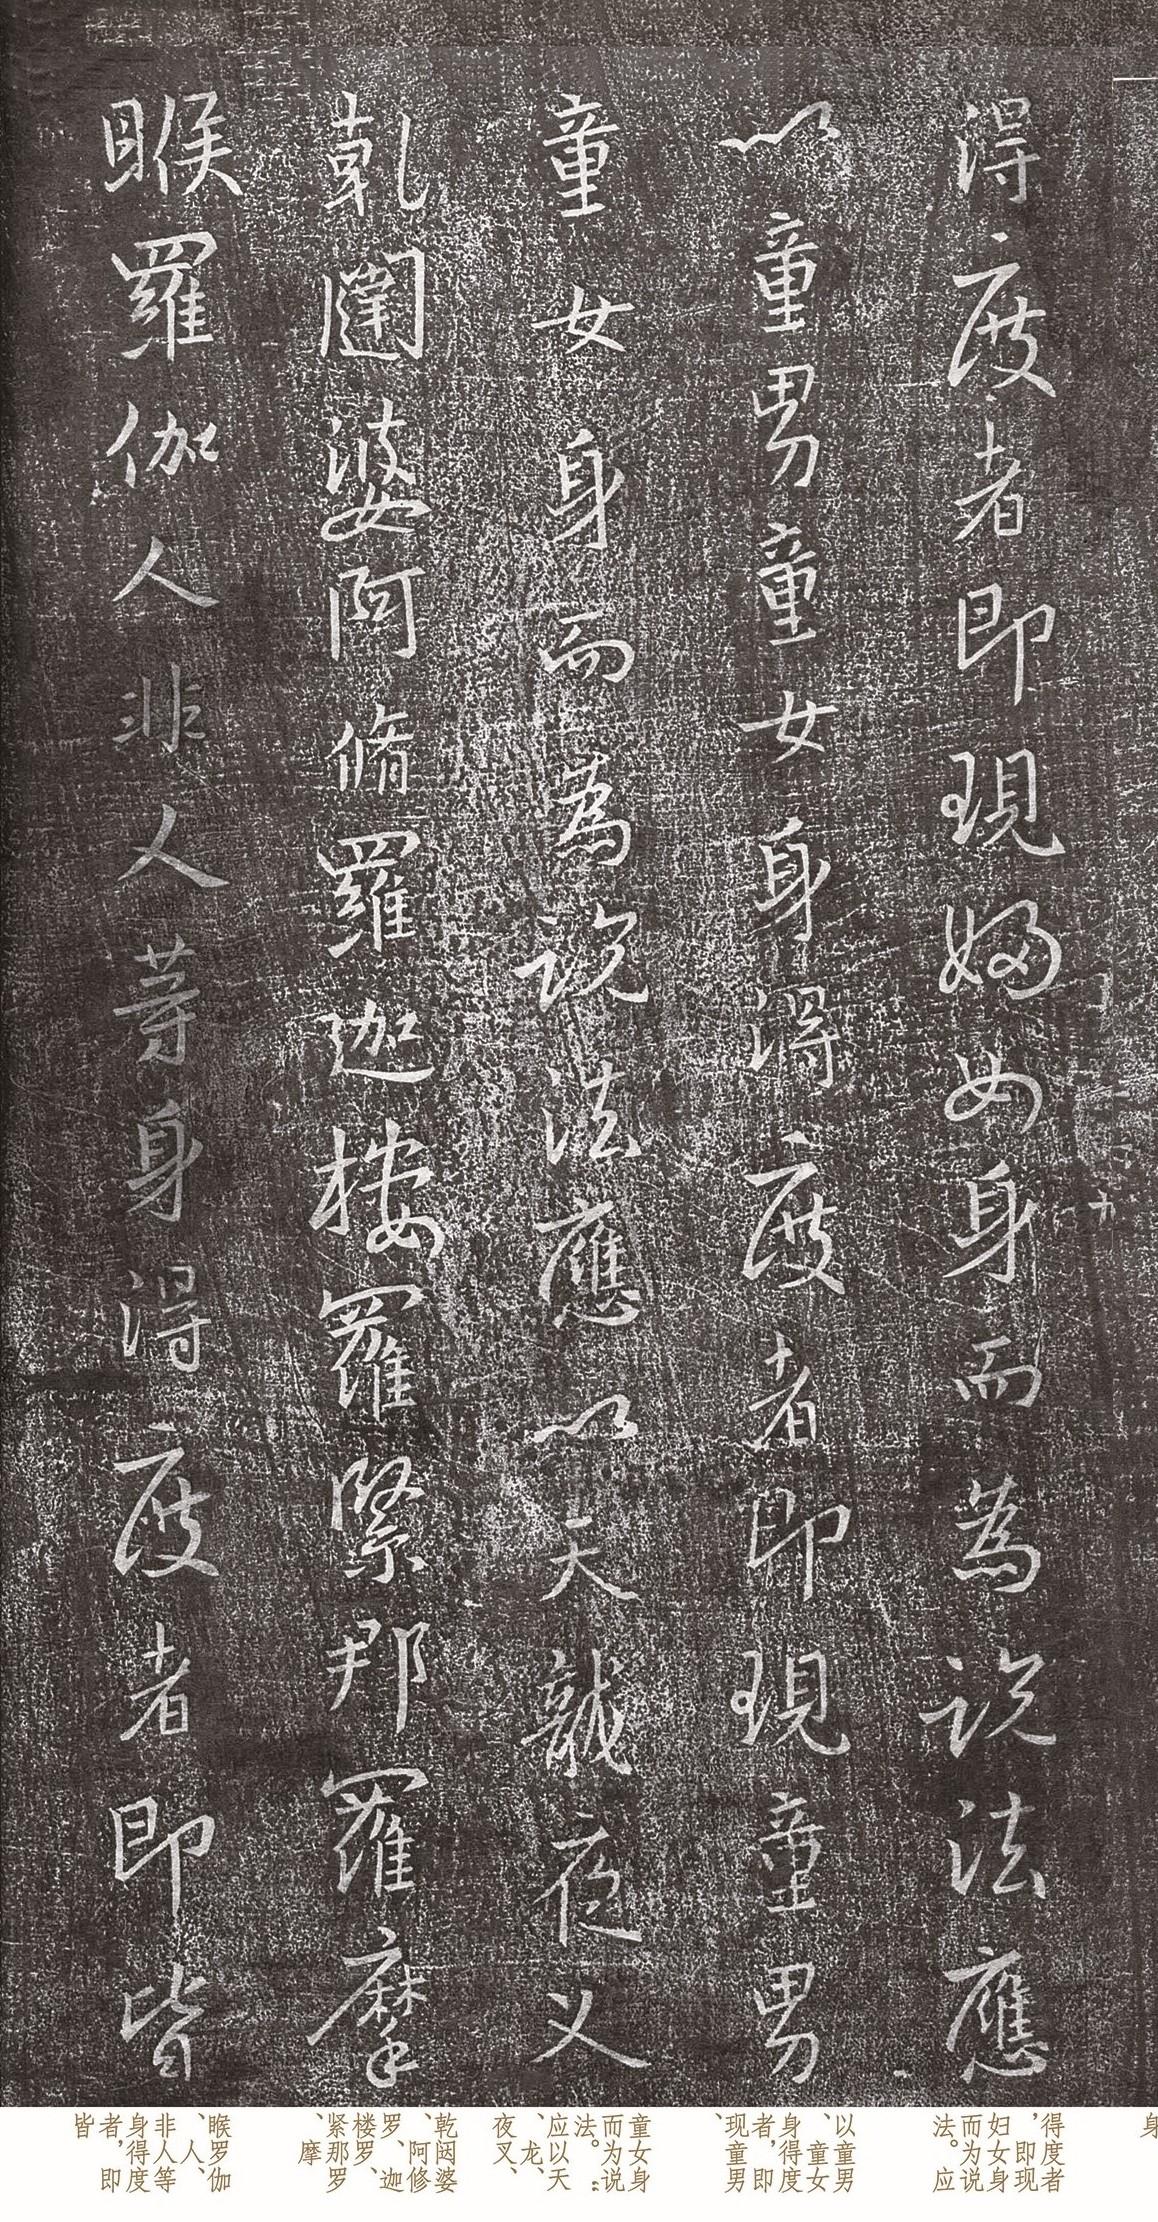 得度者即現婦女身而為説法應
以童男童女身得度者即現童男
童女身而為説法應以天龍夜叉
乾闥婆阿脩羅迦樓羅緊那羅摩
睺羅伽人非人等身得度者即皆
身
得度者
、即现
妇女身
而为说
法。应
以童男
、童女
身得度
者,即
现童男
、
童女身
而为说
法。”
应以天
、龙、
夜叉、
乾闼婆
、阿修
罗、迦
楼罗、
紧那罗
、摩
睺罗伽
、人、
非人等
身得度
者,即
皆